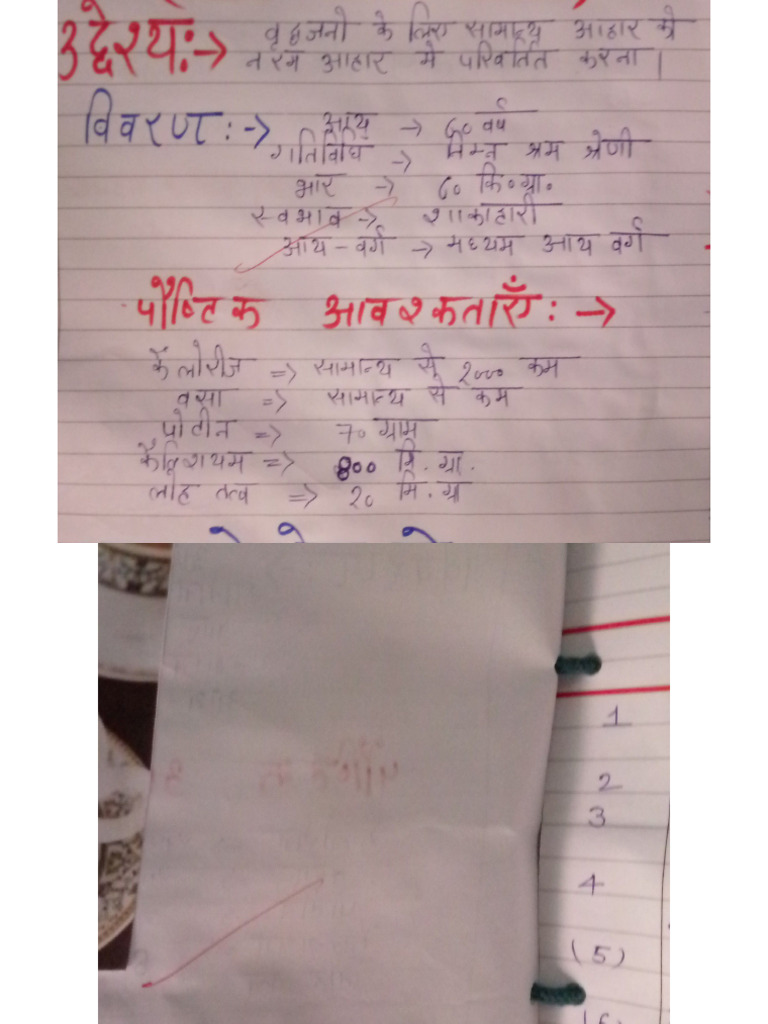 उद्देश्यः→ वृद्धजनो के लिए सामान्य आहार को
नरम आहार में परिवर्तित करना।
विवरण:→
आयु → ८० वर्ष
गतिविधि → निम्न श्रम श्रेणी
भार → ८० कि०ग्रा०
स्वभाव → शाकाहारी
आय-वर्ग → मध्यम आय वर्ग
पौष्टिक आवश्कताएँ:→
कैलोरीज => सामान्य से २००० कम
वसा => सामान्य से कम
प्रोटीन => ७० ग्राम
कैल्शियम => 800 मि.ग्रा.
लोह तत्व => २० मि.ग्रा
1
2
3
4
(5)